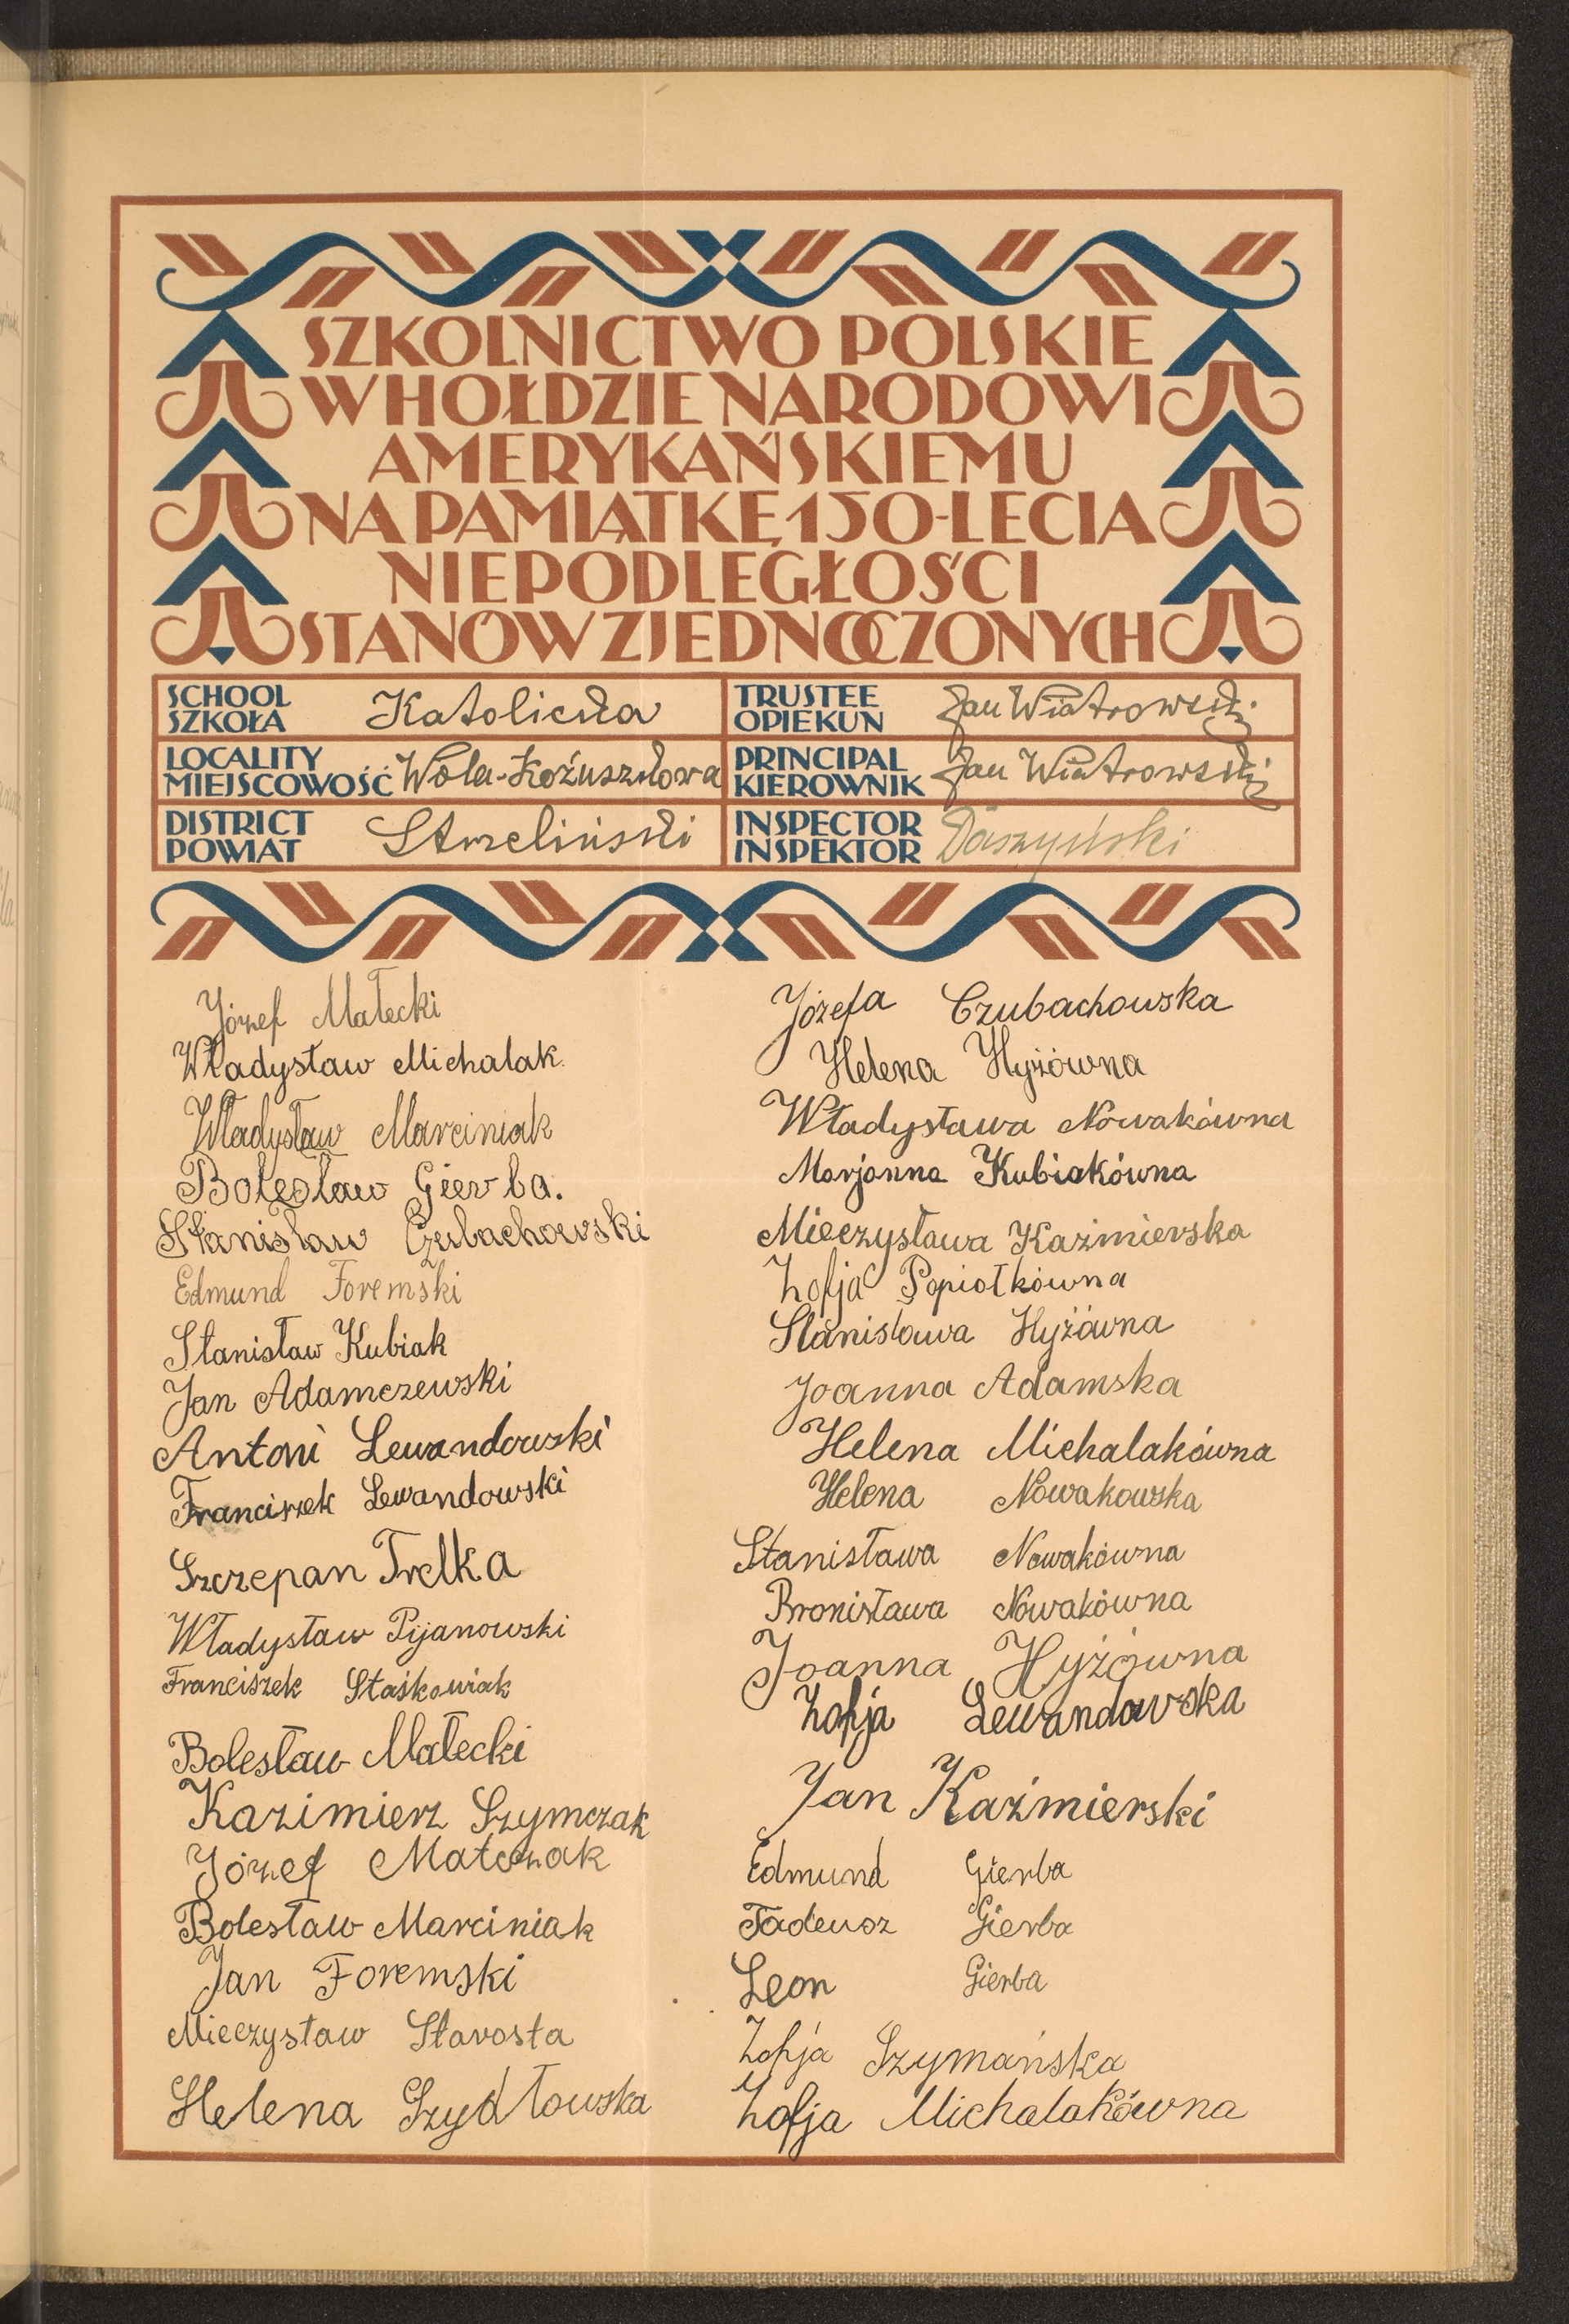 SZKOLNICTWO POLSKIE
W HOŁDZIE NARODOWI
AMERYKAŃSKIEMU
NA PAMIĄTKĘ 150-LECIA
NIEPODLEGŁOŚCI
STANÓW ZJEDNOCZONYCH
SCHOOL
SZKOŁA Katolicka
TRUSTEE
OPIEKUN Jan Wiatrowski
LOCALITY
MIEJSCOWOŚĆ Wola-Kożuszkowa
PRINCIPAL
KIEROWNIK Jan Wiatrowski
DISTRICT
POWIAT Strzeliński
INSPECTOR
INSPEKTOR Daszyński
Józef Małecki
Władysław Michalak
Władysław Marciniak
Bolesław Gierba.
Stanisław Czubachowski
Edmund Foremski
Stanisław Kubiak
Jan Adamczewski
Antoni Lewandowski
Franciszek Lewandowski
Szczepan Trelka
Władysław Pijanowski
Franciszek Staśkowiak
Bolesław Małecki
Kazimierz Szymczak
Józef Matczak
Bolesław Marciniak
Jan Foremski
Mieczysław Starosta
Helena Szydłowska
Józefa Czubachowska
Helena Hyżówna
Władysława Nowakówna
Marjanna Kubiakówna
Mieczysława Kaźmierska
Zofja Popiołkówna
Stanisława Hyżówna
Joanna Adamska
Helena Michalakówna
Helena Nowakowska
Stanisława Nowakówna
Bronisława Nowakówna
Joanna Hyżówna
Zofja Lewandowska
Jan Kaźmierski
Edmund Gierba
Tadeusz Gierba
Leon Gierba
Zofja Szymańska
Zofja Michalakówna